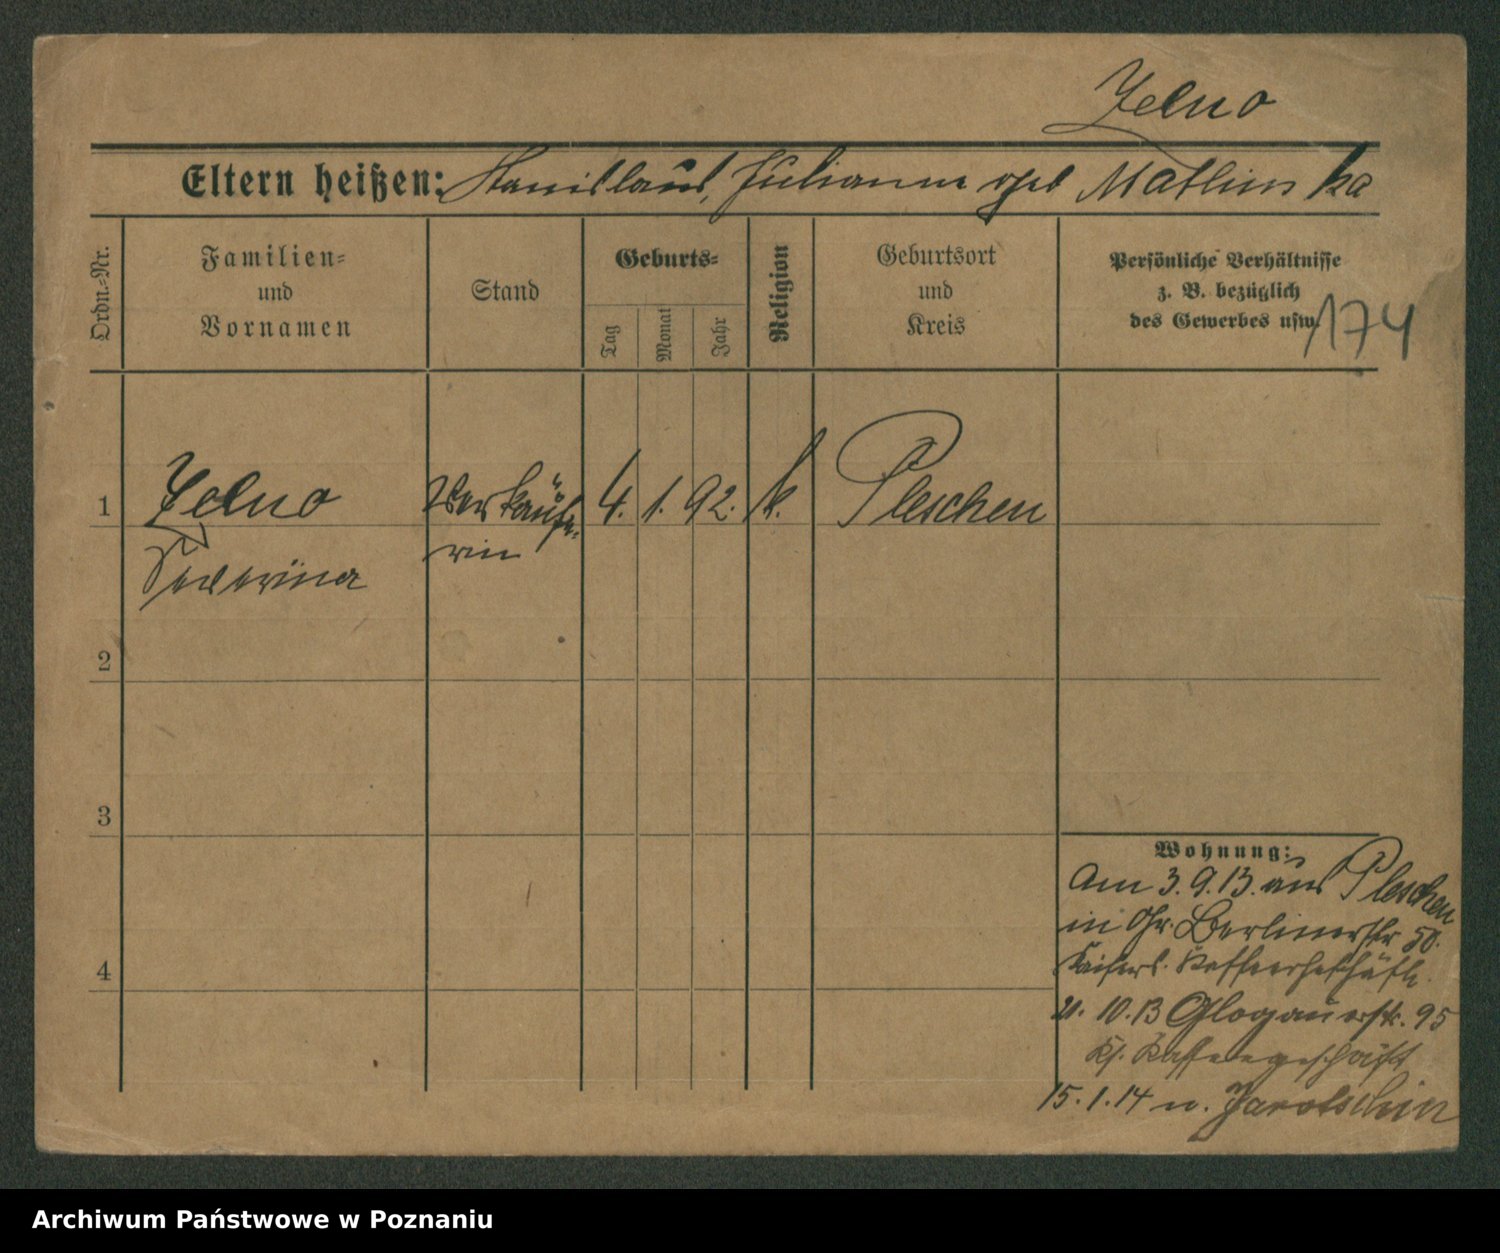 Zelno
Eltern heißen: Stanislaus, Julianna geb Matlinska
Ordn.-Nr.
Familien-
und
Vornamen
Stand
Geburts-
Tag
Monat
Jahr
Religion
Geburtsort
und
Kreis
Persönliche Verhältnisse
z. B. bezüglich
des Gewerbes usw.
174
1 Zelno Verkäufe- 4. 1. 92. k. Pleschen
rin
Severina
2
3
4
Wohnung:
Am 3. 9. 13. aus Pleschen
in Gr. Berlinerstr 50.
Kaisers. Kaffeegeschäft.
21. 10. 13 Glogauerstr. 95
Ks. Kaffeegeschäft
15. 1. 14 n. Jarotschin
Archiwum Państwowe w Poznaniu